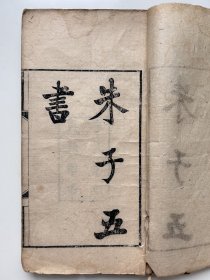 朱子五
書